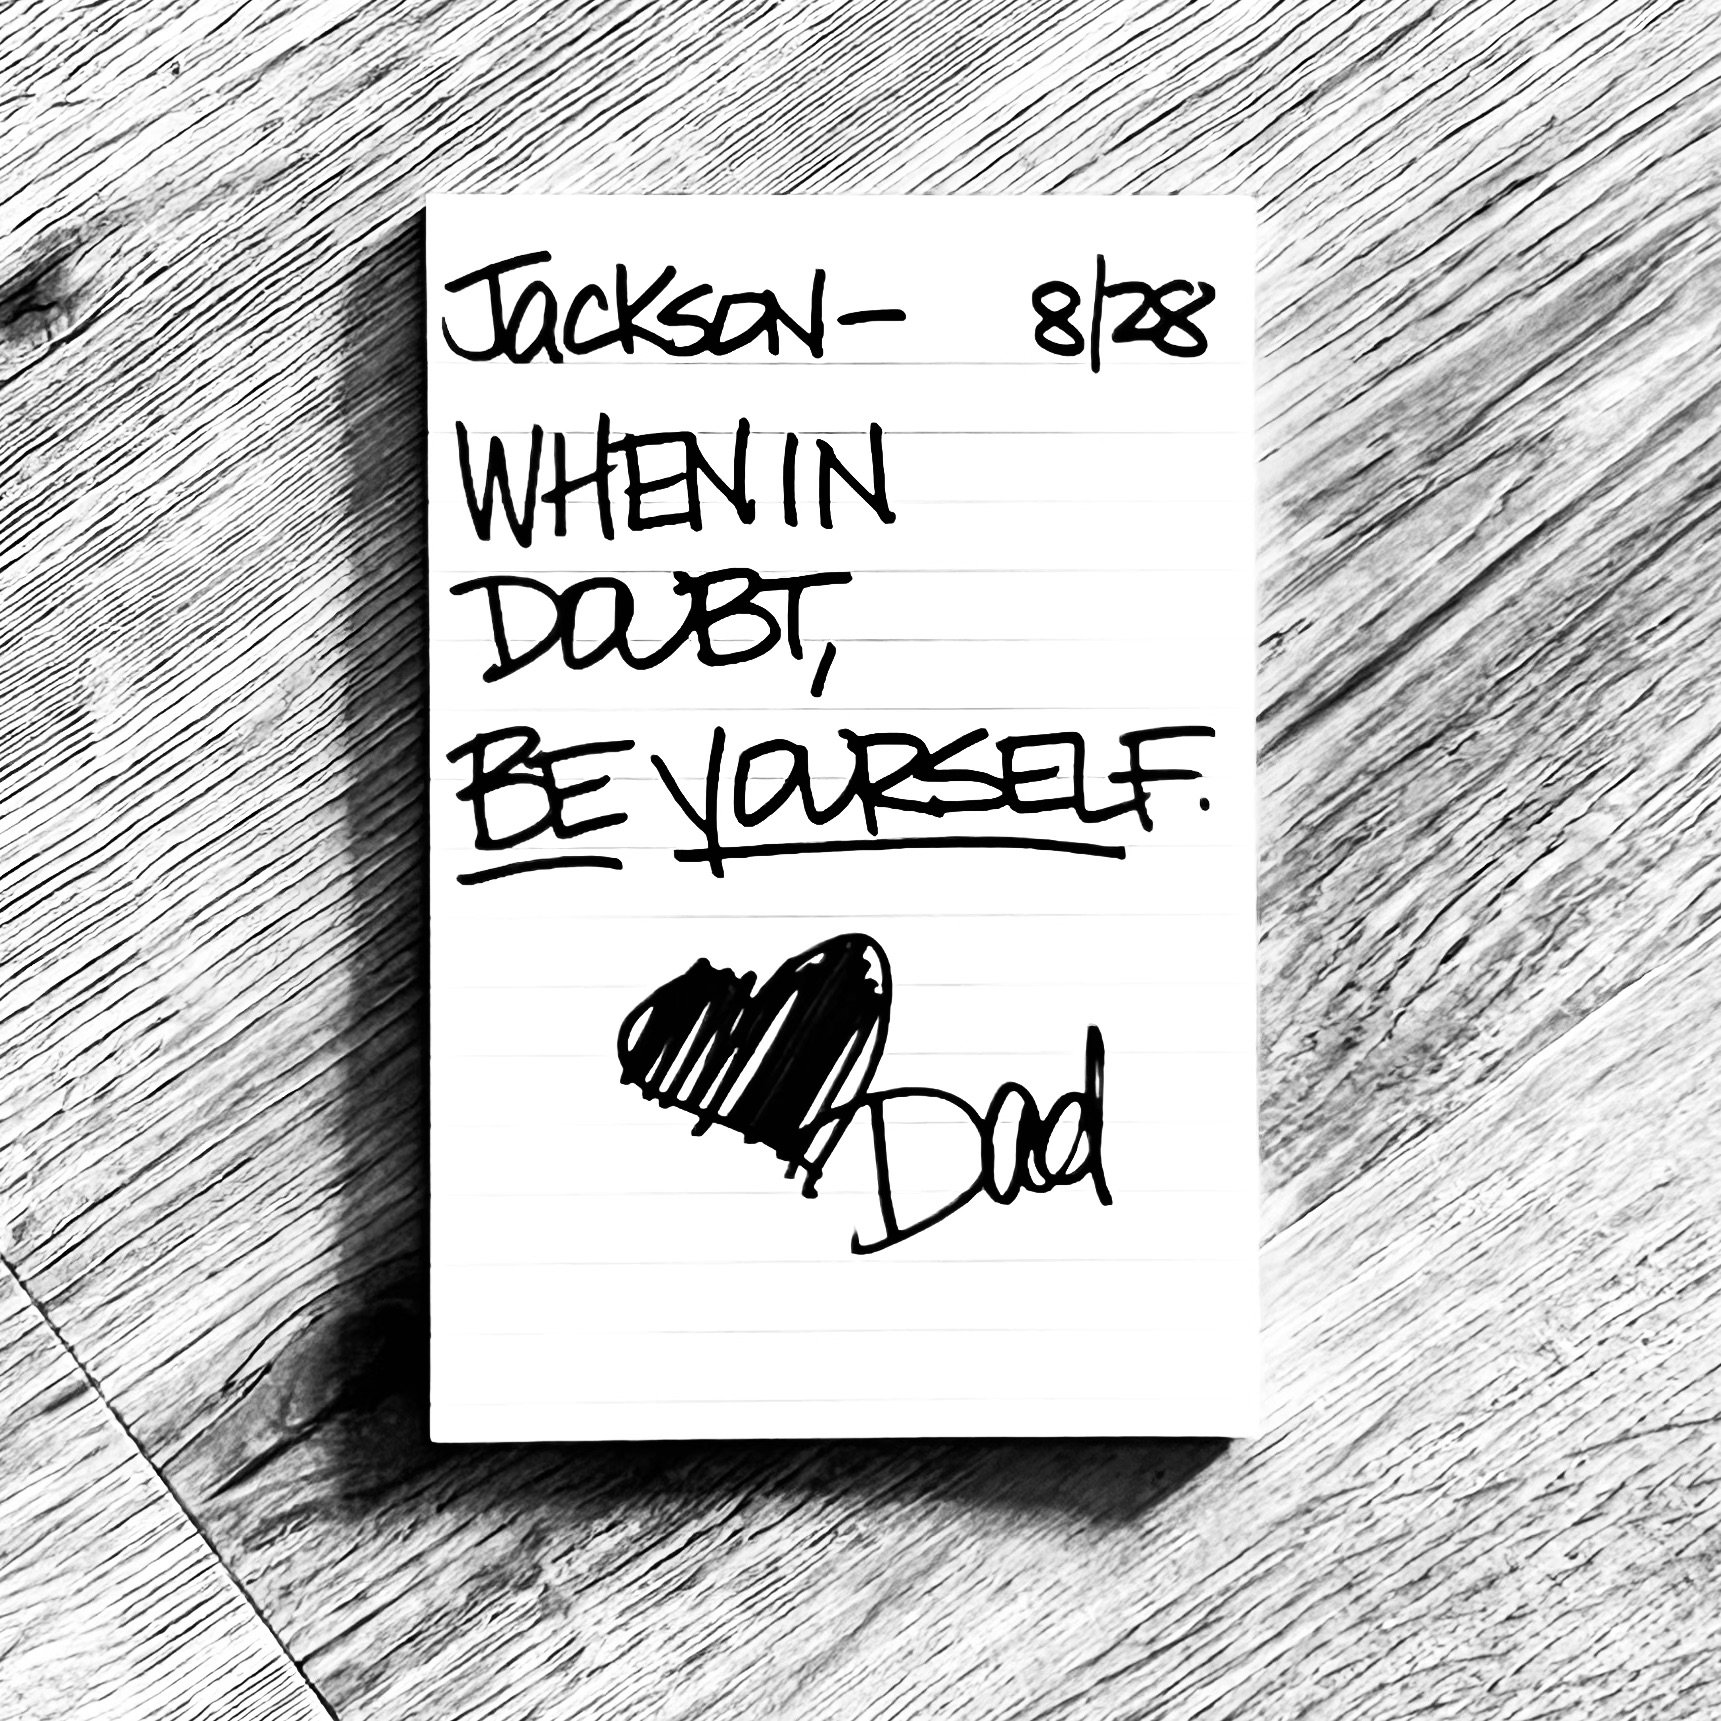 Jackson— 8/28
WHEN IN
DOUBT,
BE YOURSELF.
Dad